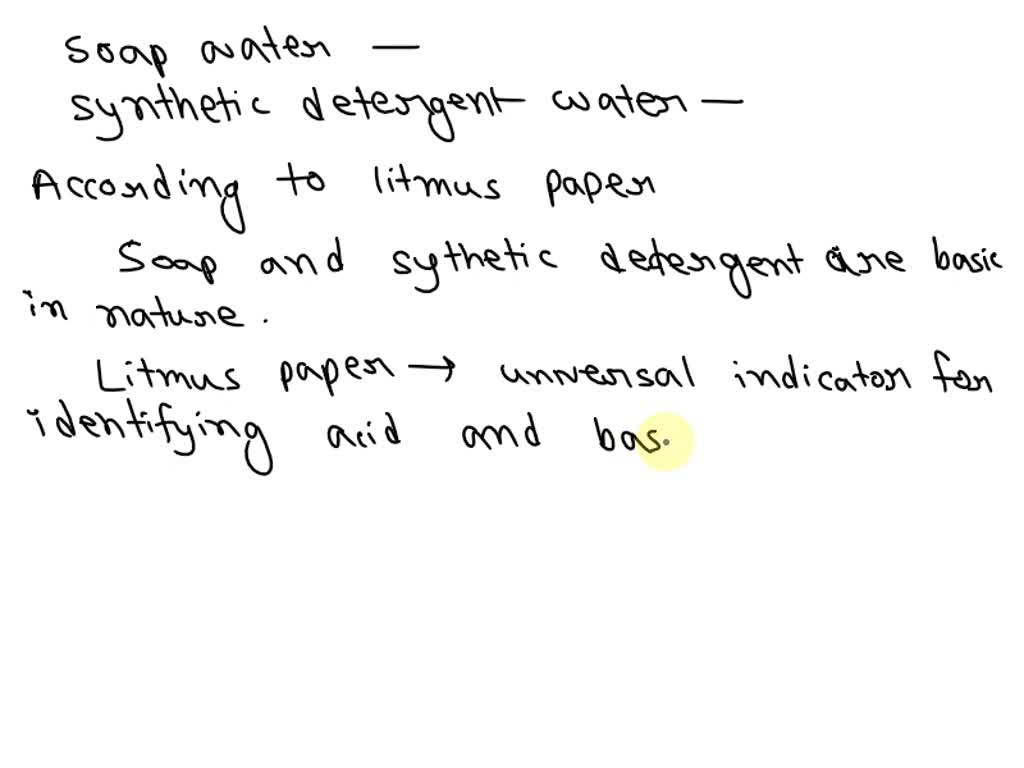 Soap water —
synthetic detergent water —
According to litmus paper
Soap and sythetic detergent are basic
in nature.
Litmus paper → unversal indicator for
identifying acid and bas